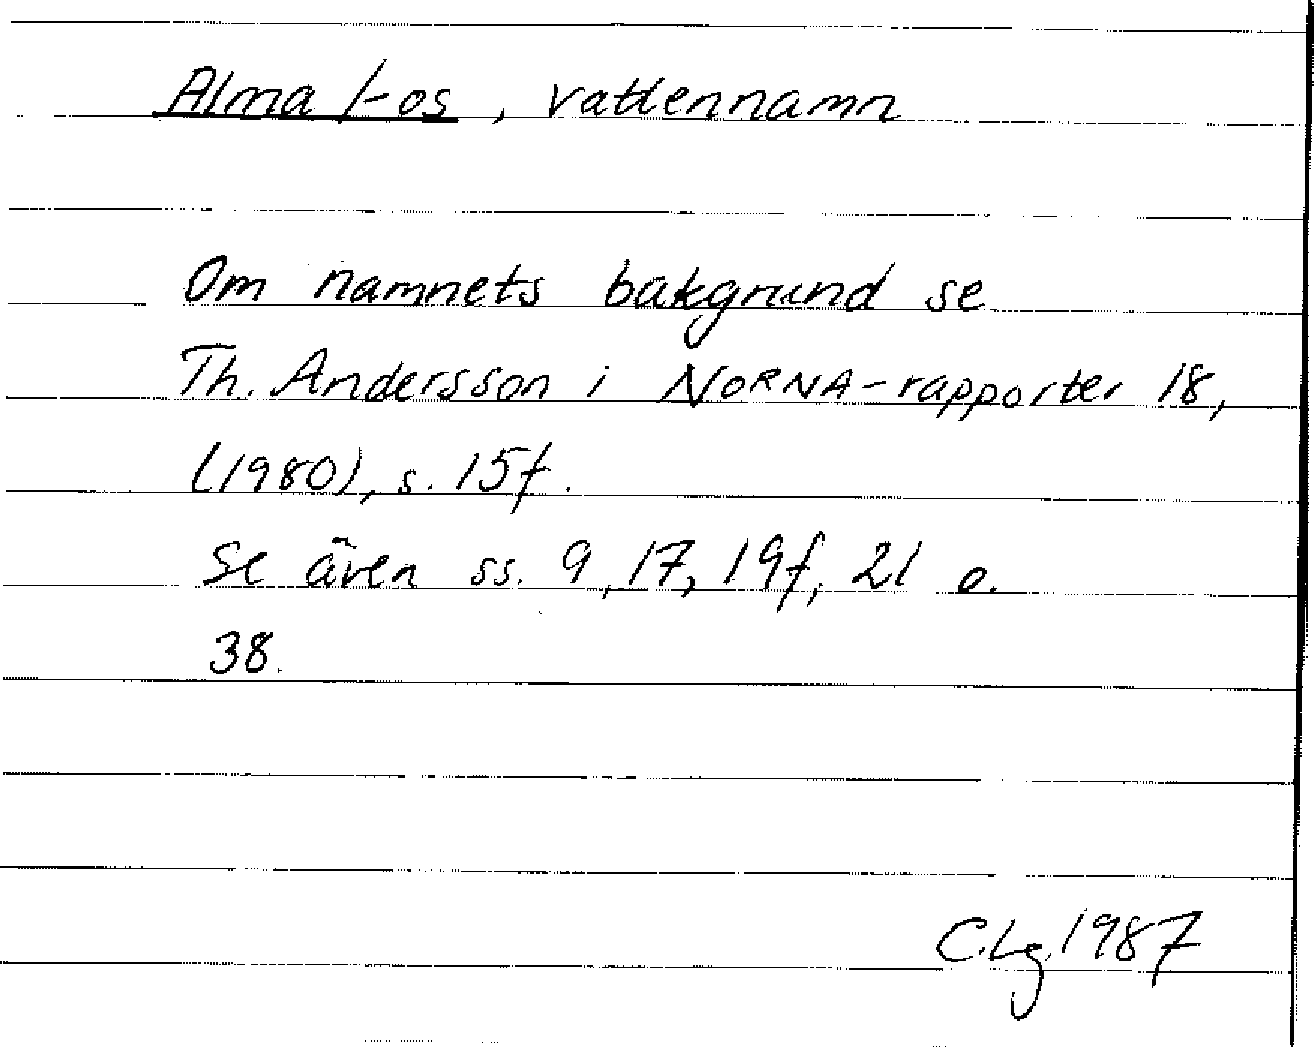 Alma /-os, vattennamn
Om namnets bakgrund se
Th. Andersson i NORNA-rapporter 18,
(1980), s. 15f.
Se även ss. 9, 17, 19f, 21 o.
38.
C.Lg. 1987